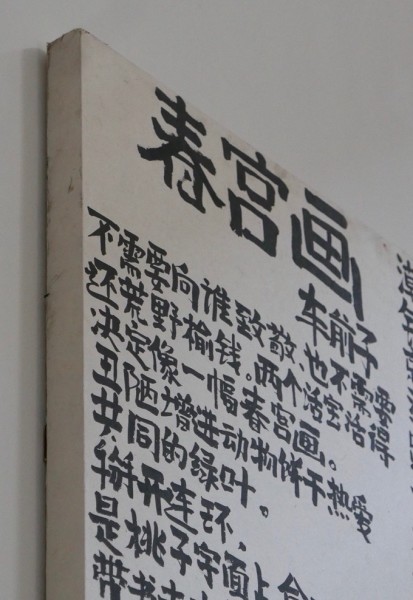 春宫画
车前子
不需要向谁致敬、也不需要
还荒野榆钱。两个活宝活得
决定像一幅春宫画。
丑陋增进动物饼干热爱
共同的绿叶。
掰开连环，
是桃子字面上
带书